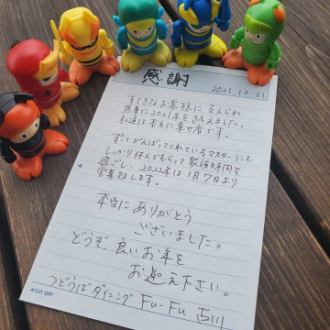 感謝
2021.12.31
すてきなお客様に支えられ
無事に2021年を終えました。
私達は本当に幸せ者です。
ずっとがんばってくれているマスターにも
しっかり休んでもらって家族時間を
過ごし、2022年は1月7日より
営業致します。
本当にありがとう
ございました。
どうぞ、良いお年を
お迎え下さい。
つどうばダイニング Fu-Fu 古川
CUT OFF